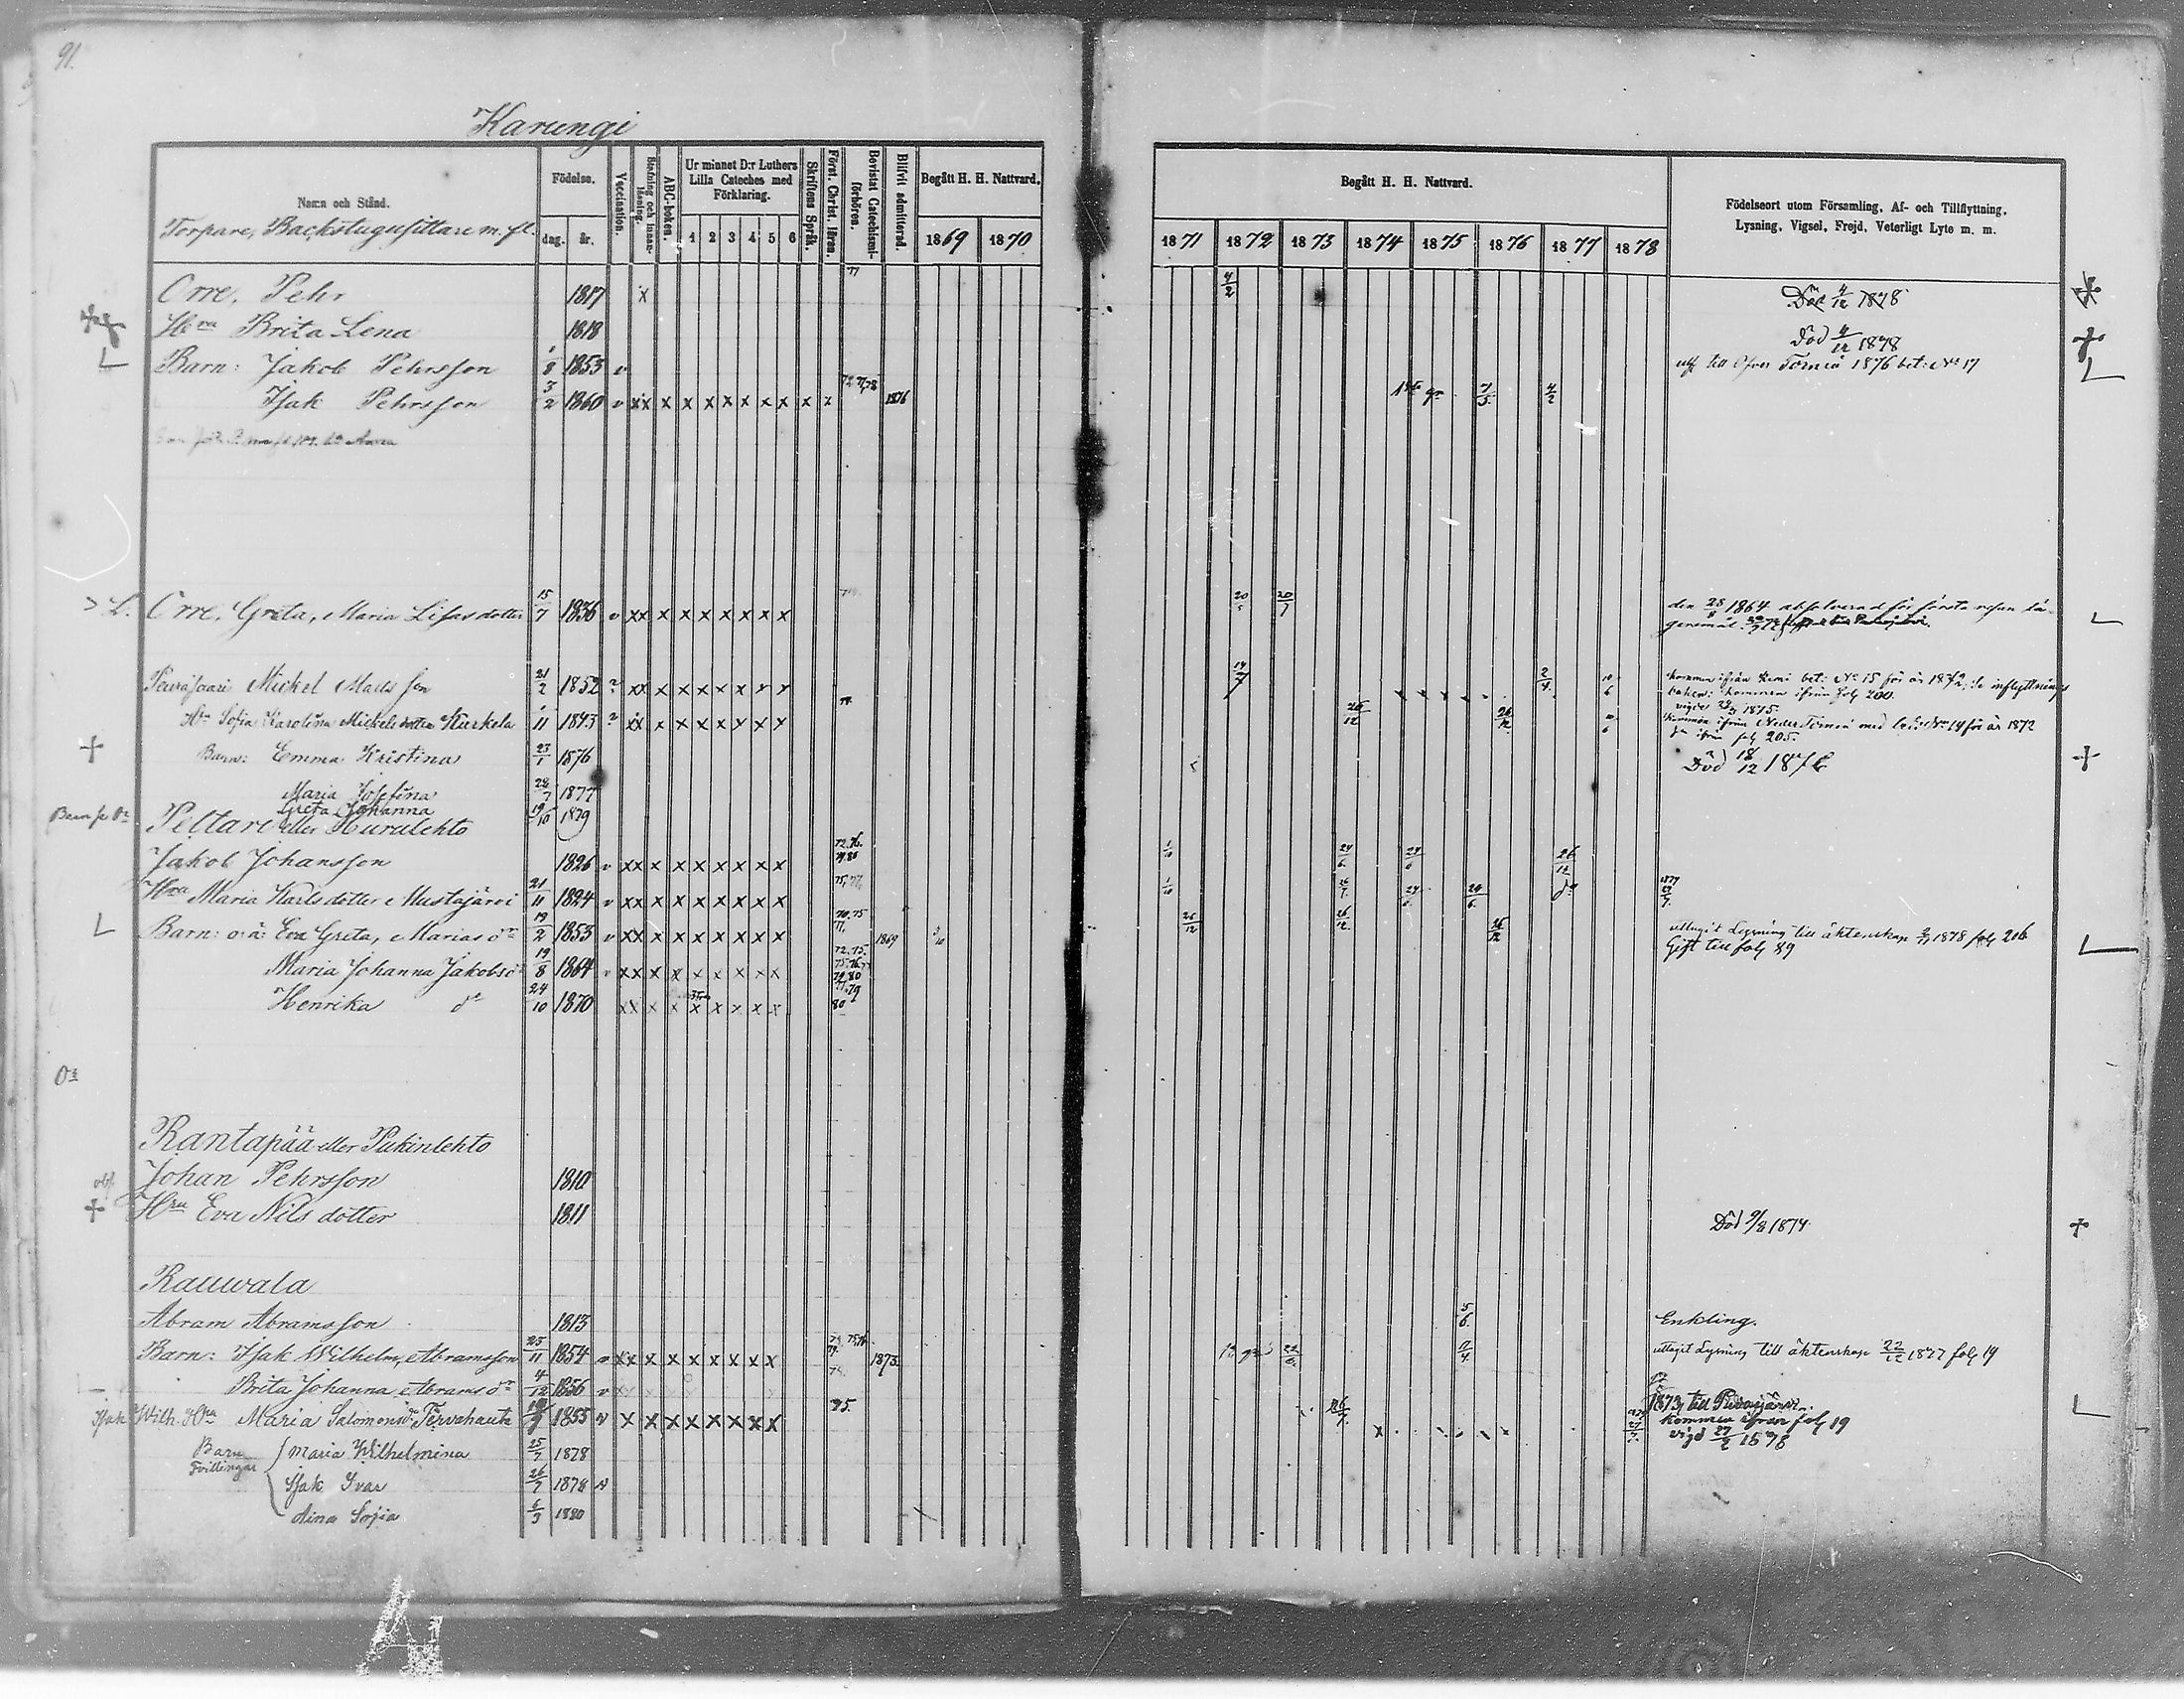 91.
Karungi
Namn och Stånd.
Torpare, Backstugusittare m. fl.
Födelse.
dag. år.
Vaccination.
Stafning och innanläsning.
ABC-boken.
Ur minnet D:r Luthers Lilla Cateches med Förklaring.
1 2 3 4 5 6
Skriftens Språk.
Först. Christ. läran.
Bevistat Catechismi-förhören.
Blifvit admitterad.
Begått H. H. Nattvard.
1869 1870
Begått H. H. Nattvard.
1871 1872 1873 1874 1875 1876 1877 1878
Födelseort utom Församling, Af- och Tillflyttning, Lysning, Vigsel, Frejd, Veterligt Lyte m. m.
Orre, Pehr 1817 x 4/2 Död 4/12 1878
Hru Brita Lena 1818 Död 4/12 1878
Barn: Jakob Pehrsson 1/8 1853 v till Öfver Torneå 1876 bet: No 17
Isak Pehrsson 3/2 1860 v xx x x x x x x x x x 1876 7/5 4/2
Orre, Greta, Maria Lisas dotter 15/7 1836 v xx x x x x x x x 20/5 20/7 den 28/8 1864 absolverad för första resan lägersmål.
Peurasaari Mickel Matsson 21/2 1852 ? xx x x x x x x x 14/7 2/4 10/6 kommen ifrån Kemi bet: No 15 för år 1872, se inflyttnings boken: kommen ifrån folj 200.
Hu Sofia Karolina Mickelsdotter Kurkela 1/11 1843 ? xx x x x x x x x 26/12 26/12 10/6 vigde 1875. kommen ifrån Neder Torneå med bet: No 14 för år 1872
ifrån folj 205.
Barn: Emma Kristina 23/1 1876 Död 18/12 1876
Maria Josefina 22/7 1877
Greta Johanna 19/10 1879
Pettari eller Huralehto
Jakob Johansson 1826 v xx x x x x x x x 1/10 24/6 24/6 26/12
Hru Maria Karlsdotter Mustajärvi 21/11 1824 v xx x x x x x x x 1/10 26/7 24/6 24/6 do
Barn: o.ä: Eva Greta, Marias dr 19/2 1853 v xx x x x x x x x 1869 3/10 26/12 26/12 26/12 uttagit Lysning till äktenskap 1878 folj 206
Gift till folj 89
Maria Johanna Jakobsdr 19/8 1864 v xx x x x x x x x
Henrika do 24/10 1870 xx x x x x x x x 80
Rantapää eller Pukinlehto
Johan Pehrsson 1810
Hru Eva Nils dotter 1811 Död 9/8 1874
Rauwala
Abram Abramsson 1813 5/6 Enkling.
Barn: Isak Wilhelm, Abramsson 25/11 1854 v xx x x x x x x x 1873 22/6 uttagit Lysning till äktenskap 22/12 1877 folj 19
Brita Johanna Abramsdr 4/12 1856 v
1873 till
Isak Wilh. Hru Maria Salomonsdr Tervahauta 1855 v x x x x x x x x 85. 26/7 kommen ifrån folj 19
vigd 1878
Barn Tvillingar Maria Wilhelmina 25/7 1878
Isak Ivar 26/7 1878 v
Aina Sofia 6/3 1880